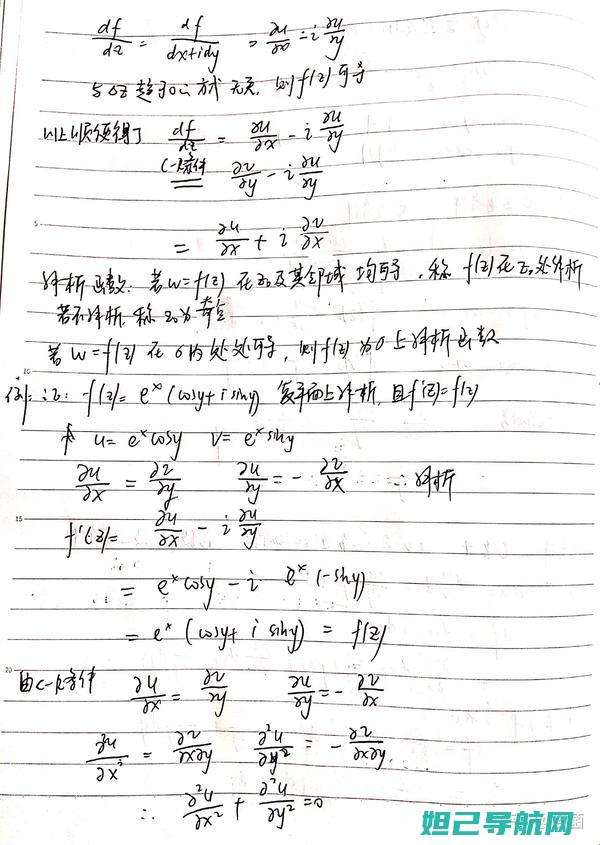 df/dz = df/(dx+idy) = ∂u/∂x - i ∂u/∂y
与Δz趋于0方式无关, 则f(z)可导
以上顺便得了 df/dz = ∂u/∂x - i ∂u/∂y
C-R条件 ∂v/∂y - i ∂u/∂y
5
= ∂u/∂x + i ∂v/∂x
解析函数: 若w=f(z) 在z₀及其邻域均可导, 称 f(z)在z₀处解析
若不解析, 称z₀为奇点
若 w=f(z) 在σ内处处可导, 则f(z)为σ上解析函数
10
例: 证: f(z)= eˣ(cosy+isiny) 复平面上解析, 且f'(z)=f(z)
u= eˣcosy v= eˣsiny
∂u/∂x = ∂v/∂y ∂u/∂y = - ∂v/∂x ∴解析
15
f'(z)= ∂u/∂x - i ∂u/∂y
= eˣcosy - i eˣ(-siny)
= eˣ(cosy+ i siny) = f(z)
20
由C-R条件 ∂u/∂x = ∂v/∂y ∂u/∂y = - ∂v/∂x
∂²u/∂x² = ∂v/∂x∂y ∂²u/∂y² = - ∂v/∂x∂y
∴ ∂²u/∂x² + ∂²u/∂y² =0
妲己导航网